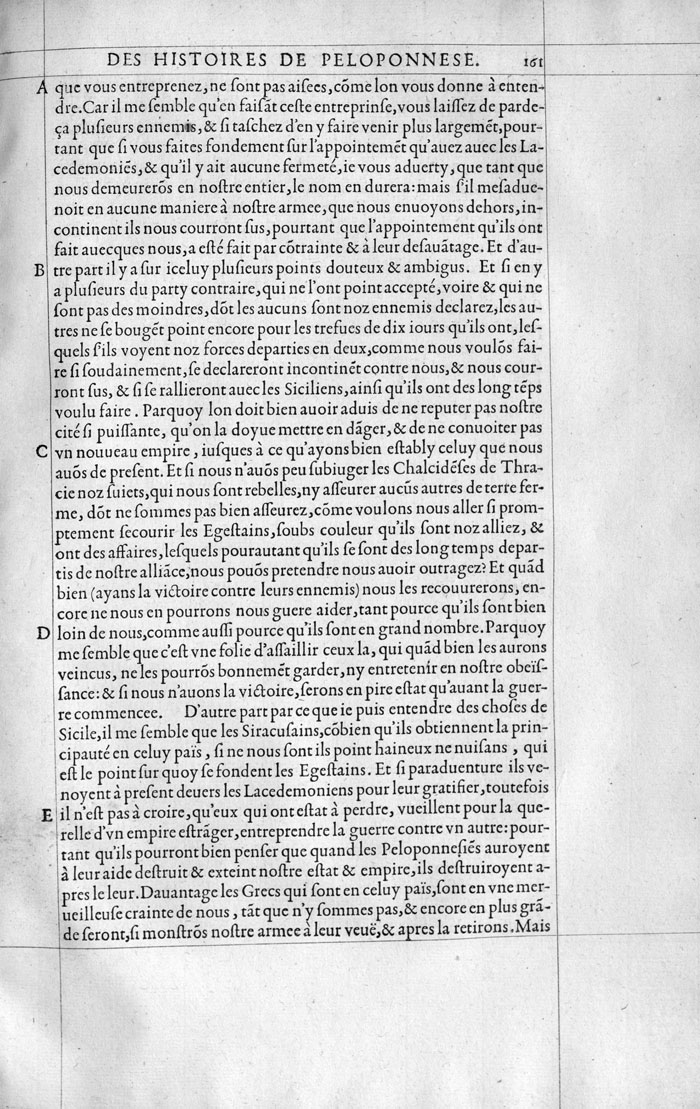 DES HISTOIRES DE PELOPONNESE. 161
A que vous entreprenez, ne ſont pas aiſees, cõme lon vous donne à enten-
dre. Car il me ſemble qu'en faiſãt ceſte entreprinſe, vous laiſſez de parde-
ça pluſieurs ennemis, & ſi taſchez d'en y faire venir plus largemẽt, pour-
tant que ſi vous faites fondement ſur l'appointemẽt qu'auez auec les La-
cedemoniẽs, & qu'il y ait aucune fermeté, ie vous aduerty, que tant que
nous demeurerõs en noſtre entier, le nom en durera: mais ſ'il meſadue-
noit en aucune maniere à noſtre armee, que nous enuoyons dehors, in-
continent ils nous courront ſus, pourtant que l'appointement qu'ils ont
fait auecques nous, a eſté fait par cõtrainte & à leur deſauãtage. Et d'au-
B tre part il y a ſur iceluy pluſieurs points douteux & ambigus. Et ſi en y
a pluſieurs du party contraire, qui ne l'ont point accepté, voire & qui ne
ſont pas des moindres, dõt les aucuns ſont noz ennemis declarez, les au-
tres ne ſe bougẽt point encore pour les trefues de dix iours qu'ils ont, leſ-
quels ſ'ils voyent noz forces departies en deux, comme nous voulõs fai-
re ſi ſoudainement, ſe declareront incontinẽt contre nous, & nous cour-
ront ſus, & ſi ſe rallieront auec les Siciliens, ainſi qu'ils ont des long tẽps
voulu faire. Parquoy lon doit bien auoir aduis de ne reputer pas noſtre
cité ſi puiſſante, qu'on la doyue mettre en dãger, & de ne conuoiter pas
C vn nouueau empire, iuſques à ce qu'ayons bien eſtably celuy que nous
auõs de preſent. Et ſi nous n'auõs peu ſubiuger les Chalcidẽſes de Thra-
cie noz ſuiets, qui nous ſont rebelles, ny aſſeurer aucũs autres de terre fer-
me, dõt ne ſommes pas bien aſſeurez, cõme voulons nous aller ſi prom-
ptement ſecourir les Egeſtains, ſoubs couleur qu'ils ſont noz alliez, &
ont des affaires, leſquels pourautant qu'ils ſe ſont des long temps depar-
tis de noſtre alliãce, nous pouõs pretendre nous auoir outragez? Et quãd
bien (ayans la victoire contre leurs ennemis) nous les recouurerons, en-
core ne nous en pourrons nous guere aider, tant pource qu'ils ſont bien
D loin de nous, comme auſſi pource qu'ils ſont en grand nombre. Parquoy
me ſemble que c'eſt vne folie d'aſſaillir ceux la, qui quãd bien les aurons
veincus, ne les pourrõs bonnemẽt garder, ny entretenir en noſtre obeïſ-
ſance: & ſi nous n'auons la victoire, ſerons en pire eſtat qu'auant la guer-
re commencee. D'autre part par ce que ie puis entendre des choſes de
Sicile, il me ſemble que les Siracuſains, cõbien qu'ils obtiennent la prin-
cipauté en celuy païs, ſi ne nous ſont ils point haineux ne nuiſans, qui
eſt le point ſur quoy ſe fondent les Egeſtains. Et ſi paraduenture ils ve-
noyent à preſent deuers les Lacedemoniens pour leur gratifier, toutefois
E il n'eſt pas à croire, qu'eux qui ont eſtat à perdre, vueillent pour la que-
relle d'vn empire eſtrãger, entreprendre la guerre contre vn autre: pour-
tant qu'ils pourront bien penſer que quand les Peloponneſiẽs auroyent
à leur aide deſtruit & exteint noſtre eſtat & empire, ils deſtruiroyent a-
pres le leur. Dauantage les Grecs qui ſont en celuy païs, ſont en vne mer-
ueilleuſe crainte de nous, tãt que n'y ſommes pas, & encore en plus grã-
de ſeront, ſi monſtrõs noſtre armee à leur veuë, & apres la retirons. Mais